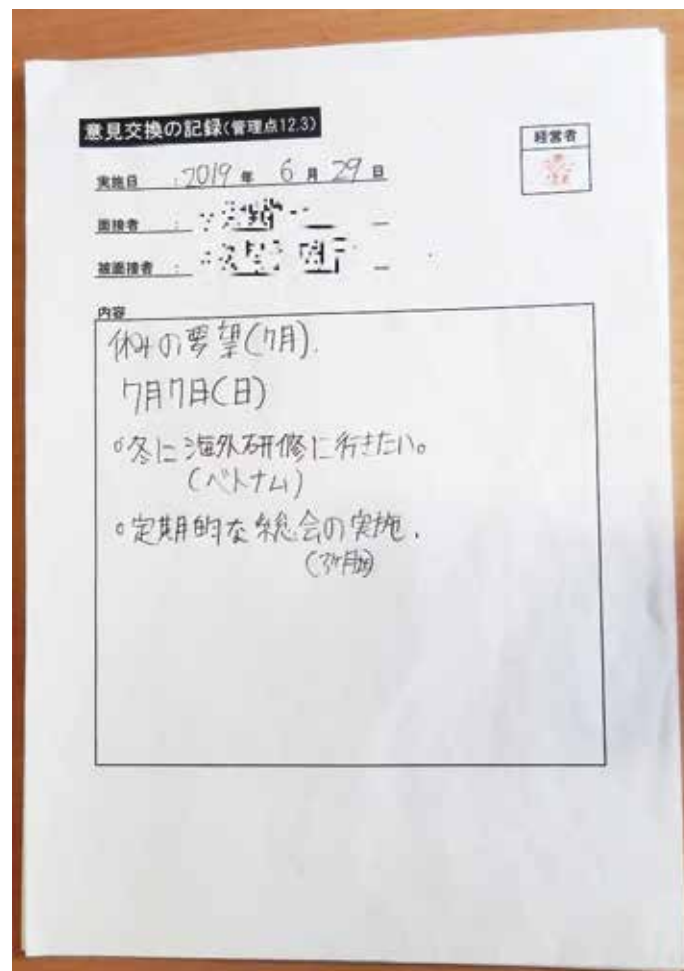 意見交換の記録(管理点12.3)
経営者
実施日 : 2019 年 6 月 29 日
面接者 :
被面接者 :
内容
休みの要望(7月).
7月7日(日)
○冬に海外研修に行きたい。
(ベトナム)
○定期的な総会の実施.